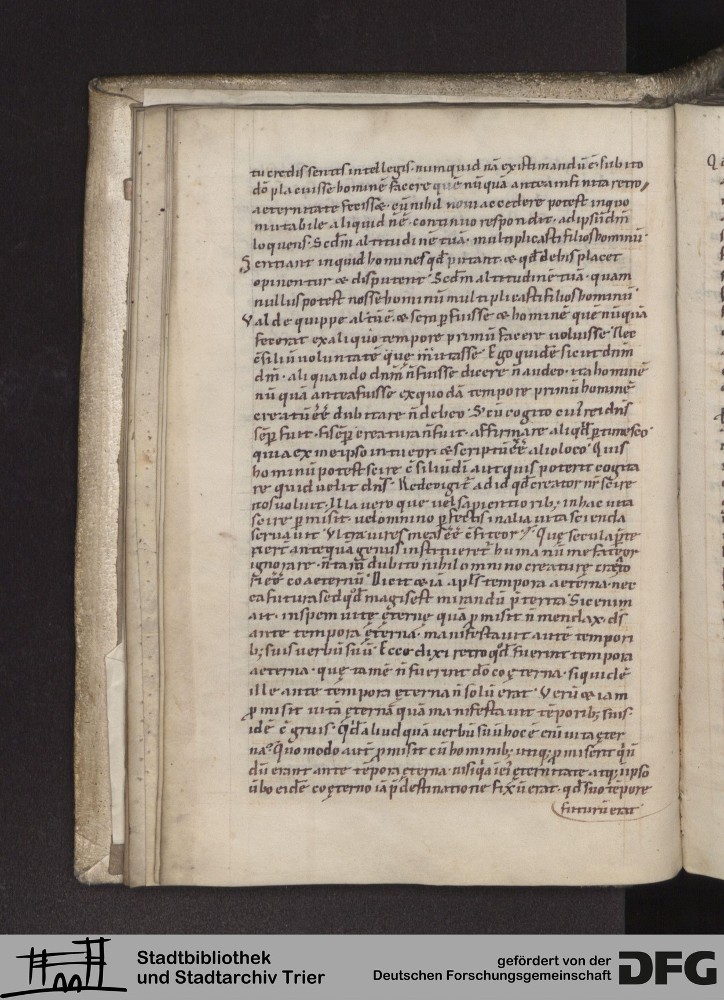 tu credis sentis intellegis· numquid nā existimandū ē· subito
dō placuisse hominē facere quē nūquā antea infinita retro
aeternitate fecisset· cū nihil noui accedere potest in quo
mutabile aliquid nē· continuo respondit· ad ipsū dnm
loquens· Scdm altitudinē tuā· multiplicasti filios hominū·
Sentiant inquid homines qd putant· & qd de his placet
opinentur & disputent· Scdm altitudinē tuā· quam
nullus potest nosse hominū multiplicasti filios hominū·
Valde quippe altū ē· & semp fuisse & hominē quē nūquā
fecerat ex aliquo tempore primū facere uoluisse· Nec
csiliū uoluntatēque mutasse· Ego quidē sicut dnm
dm̄· aliquando dnm̄ n̄ fuisse dicere n̄ audeo· ita hominē
nūquā antea fuisse ex quodā tempore primū hominē
creatū ēē dubitare n̄ debeo· S; cū cogito cui rei dn̄s
sēp fuit· si sēp creatura n̄ fuit· affirmare aliqd ptimesco·
quia & me ipso intueor & scriptū ēē alio loco· Quis
hominū potest scire csiliū dī aut quis poterit cogita
re quid uelit dns· Redeo igit ad id qd creator nr scire
nos uoluit· Illa uero que uel sapientiorib; in hac uita
scire pmisit· uel omnino pfectis in alia uita scienda
seruauit· Vltra uires meas ēē cfiteor· Que secula pte
rierī antequā genus institueret humanū me fateor
ignorare· n̄ tam̄ dubito nihil omnino creature creato
ri ēē coaeternū· Dicit & iā apls tempora aeterna· nec
ea futura sed qd magis est mirandū pterita· Sic enim
ait· in spem uite eterne quā pmisit n̄ mendax· ds
ante tempora eterna· manifestauit autē tempori
b; suis uerbū suū· Ecce dixi retro qd fuerint tempora
aeterna· que tamē n̄ fuerint dō coeterna· siquidē
ille ante tempora eterna n̄ solū erat· Verū & iam
pmisit uitā eternā quā manifestauit tēporib; suis·
idē cgruis· Qd aliud quā uerbū suū hoc ē enī uita eter
na? Quomodo aut pmisit cū hominib; utiq; pmiserit q n̄
dū erant ante tēpora eterna· nisi qa in ei eternitate· atq; ipso
ūbo eidē coeterno iā pdestinatione fixū erat· qd suo tēpore
futurū erat
Stadtbibliothek
und Stadtarchiv Trier
gefördert von der
Deutschen Forschungsgemeinschaft
DFG